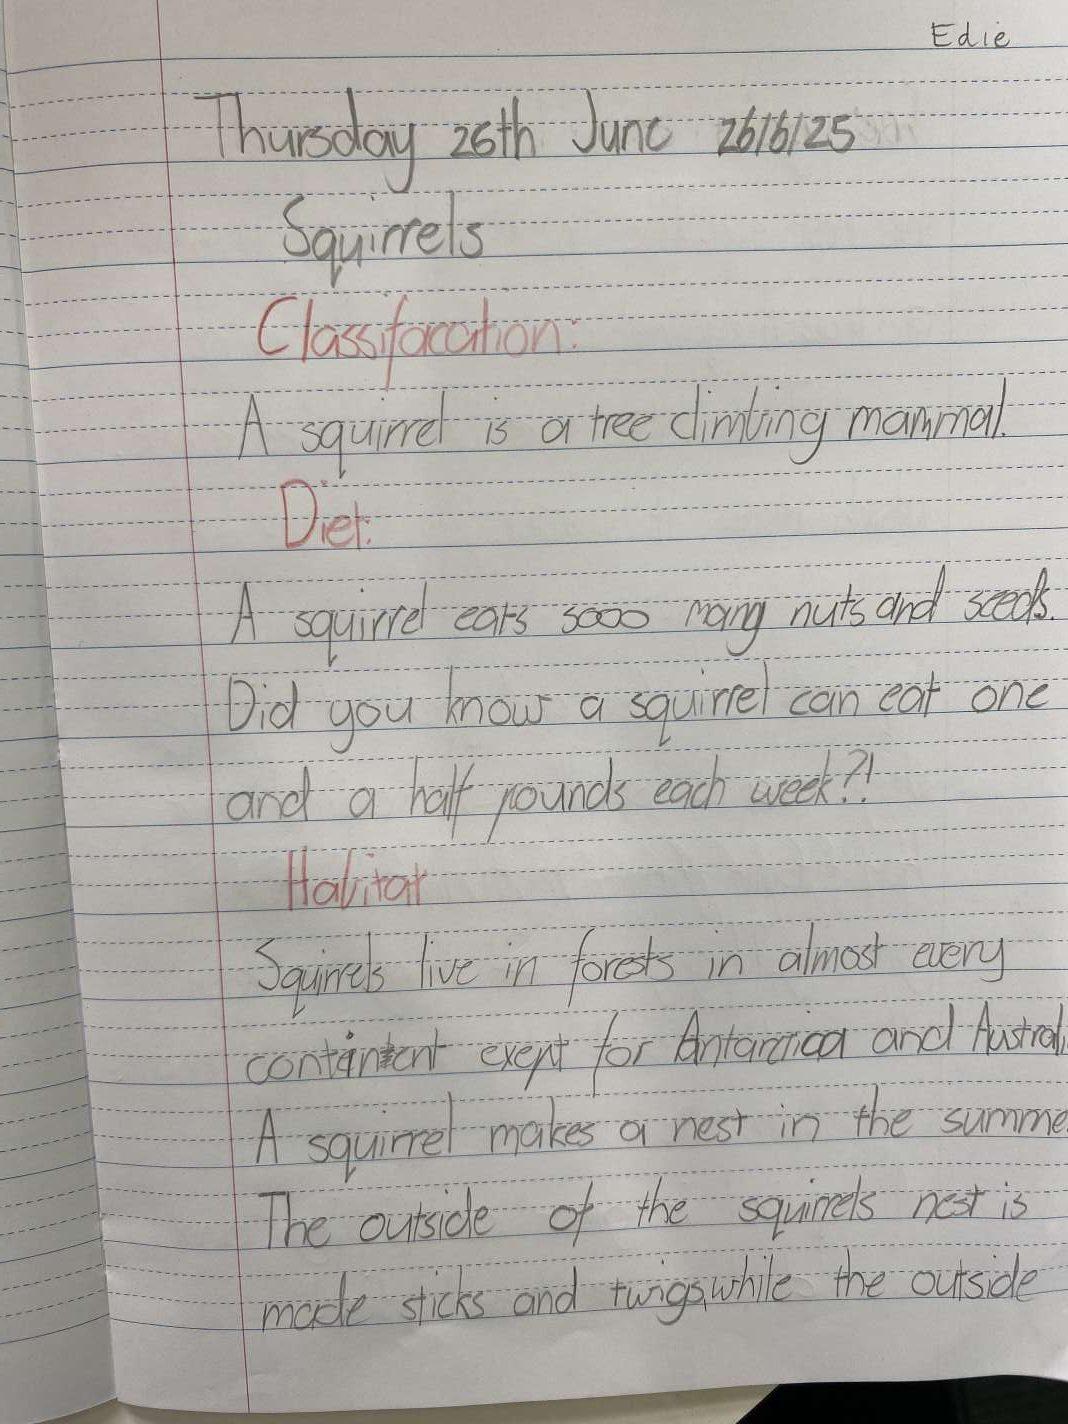 Edie
Thursday 26th June 26/6/25
Squirrels
Classifacation:
A squirrel is a tree climbing mammal.
Diet:
A squirrel eats sooo many nuts and seeds.
Did you know a squirrel can eat one
and a half pounds each week?!
Habitat
Squirrels live in forests in almost every
contintent exept for Antarctica and Australi
A squirrel makes a nest in the summe
The outside of the squirrels nest is
made sticks and twigs, while the outside